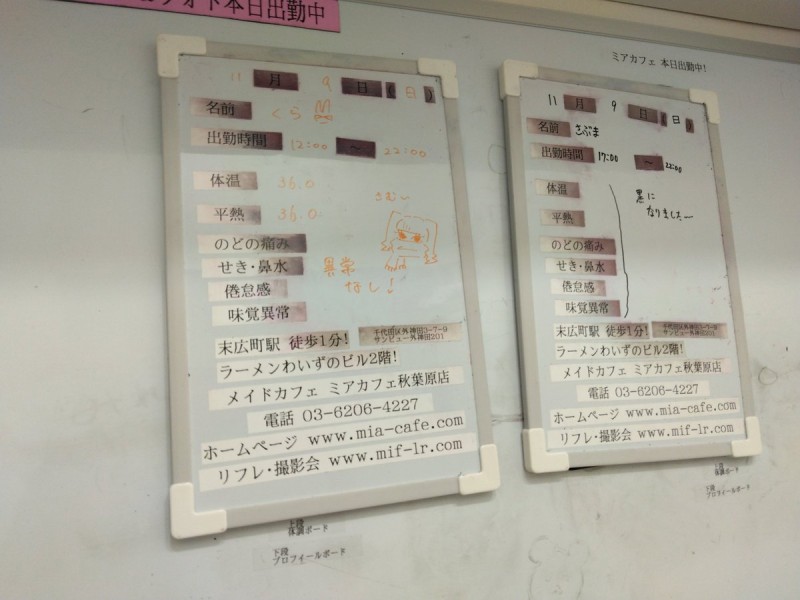 本日出勤中
11月 9日(日)
名前 くら
出勤時間 12:00 ～ 22:00
体温 36.0
平熱 36.0
さむい
のどの痛み
せき・鼻水
倦怠感
味覚異常
異常
なし!
末広町駅 徒歩1分!
千代田区外神田3-7-9
サンビュー外神田201
ラーメンわいずのビル2階!
メイドカフェ ミアカフェ秋葉原店
電話 03-6206-4227
ホームページ www.mia-cafe.com
リフレ・撮影会 www.mif-lr.com
上段
体調ボード
下段
プロフィールボード
ミアカフェ 本日出勤中!
11月 9日(日)
名前 さぶま
出勤時間 17:00 ～ 22:00
体温
平熱
のどの痛み
せき・鼻水
倦怠感
味覚異常
悪に
なりましたー
末広町駅 徒歩1分!
千代田区外神田3-7-9
サンビュー外神田201
ラーメンわいずのビル2階!
メイドカフェ ミアカフェ秋葉原店
電話 03-6206-4227
ホームページ www.mia-cafe.com
リフレ・撮影会 www.mif-lr.com
上段
体調ボード
下段
プロフィールボード